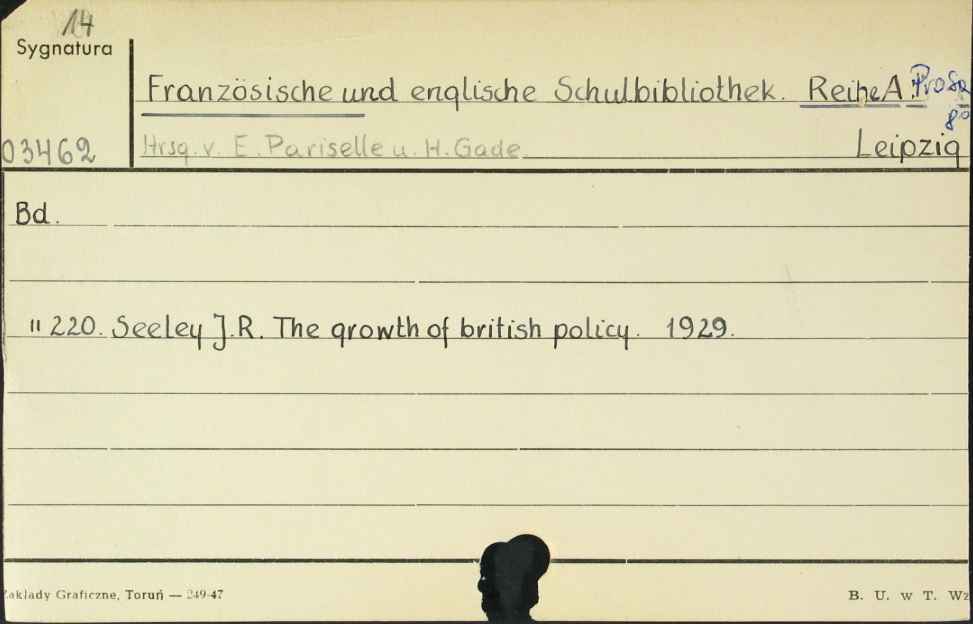 14
Sygnatura
Französische und englische Schulbibliothek. Reihe A. Prosa
8°
03462
Hrsg. v. E. Pariselle u. H. Gade
Leipzig
Bd.
" 220. Seeley J.R. The growth of british policy. 1929.
Zakłady Graficzne, Toruń — 249-47
B. U. w T. Wz